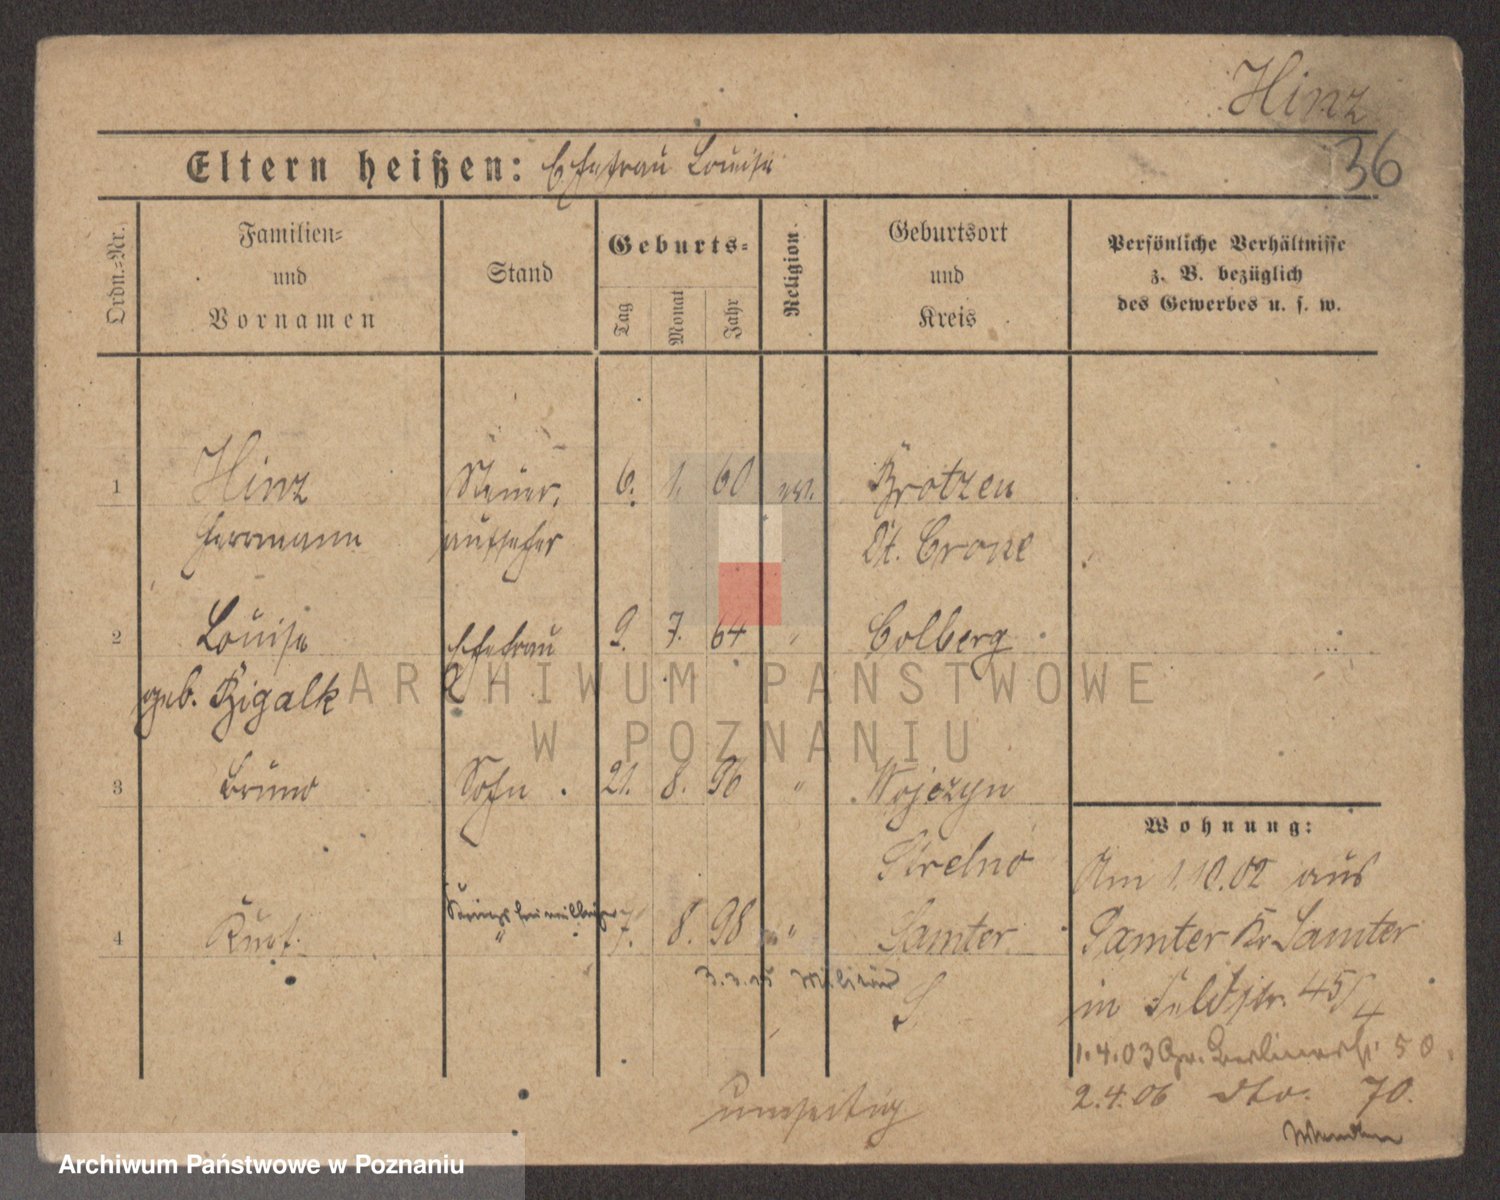 Hinz
36
Eltern heißen: Ehefrau Louise
Ordn.=Nr.
Familien=
und
Vornamen
Stand
Geburts=
Tag
Monat
Jahr
Religion
Geburtsort
und
Kreis
Persönliche Verhältnisse
z. B. bezüglich
des Gewerbes u. s. w.
1 Hinz Steuer, 6. 1. 60 ev. Brotzen
Herrmann aufseher Dt. Crone
2 Louise Ehefrau 9. 7. 64 " Colberg
geb. Rigalk
3 Bruno Sohn 21. 8. 96 " Wojczyn
Strelno
4 Kurt " 7. 8. 98 " Samter
3.3.15 Militär S
Wohnung:
Am 1.10.02 aus
Samter Kr. Samter
in Feldstr. 45/4
1.4.03 Gr. Berlinerstr. 50
2.4.06 dto. 70.
umseitig
ARCHIWUM PAŃSTWOWE
W POZNANIU
Archiwum Państwowe w Poznaniu